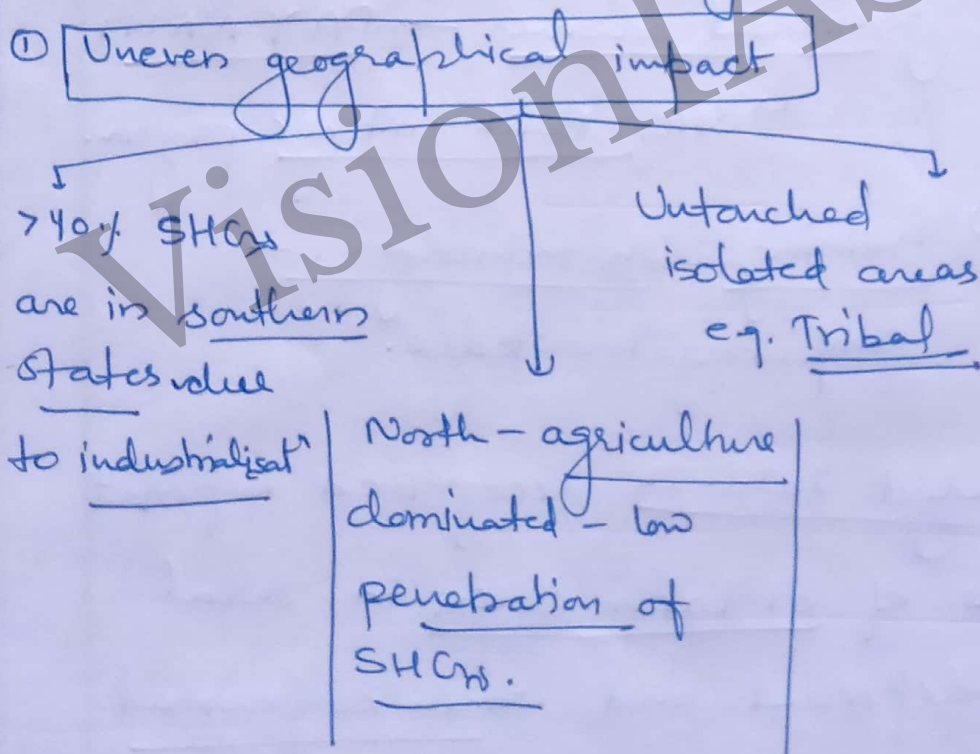 ① Uneven geographical impact
>40% SHGs
are in southern
States due
to industrialisatⁿ
North - agriculture
dominated - low
penetration of
SHGs.
Untouched
isolated areas
eg. Tribal
VisionIAS